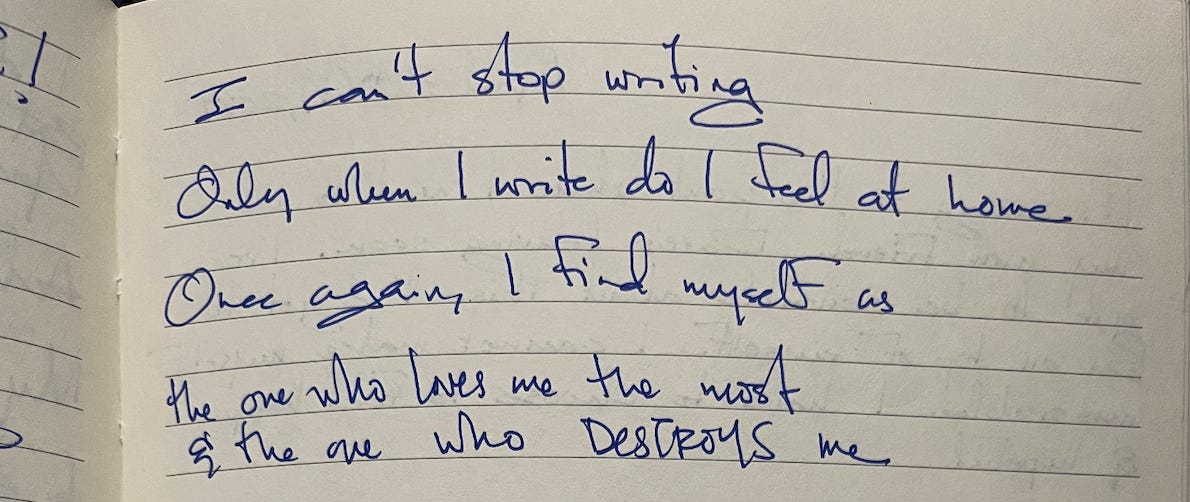 I can't stop writing
Only when I write do I feel at home
Once again, I find myself as
the one who loves me the most
& the one who DESTROYS me